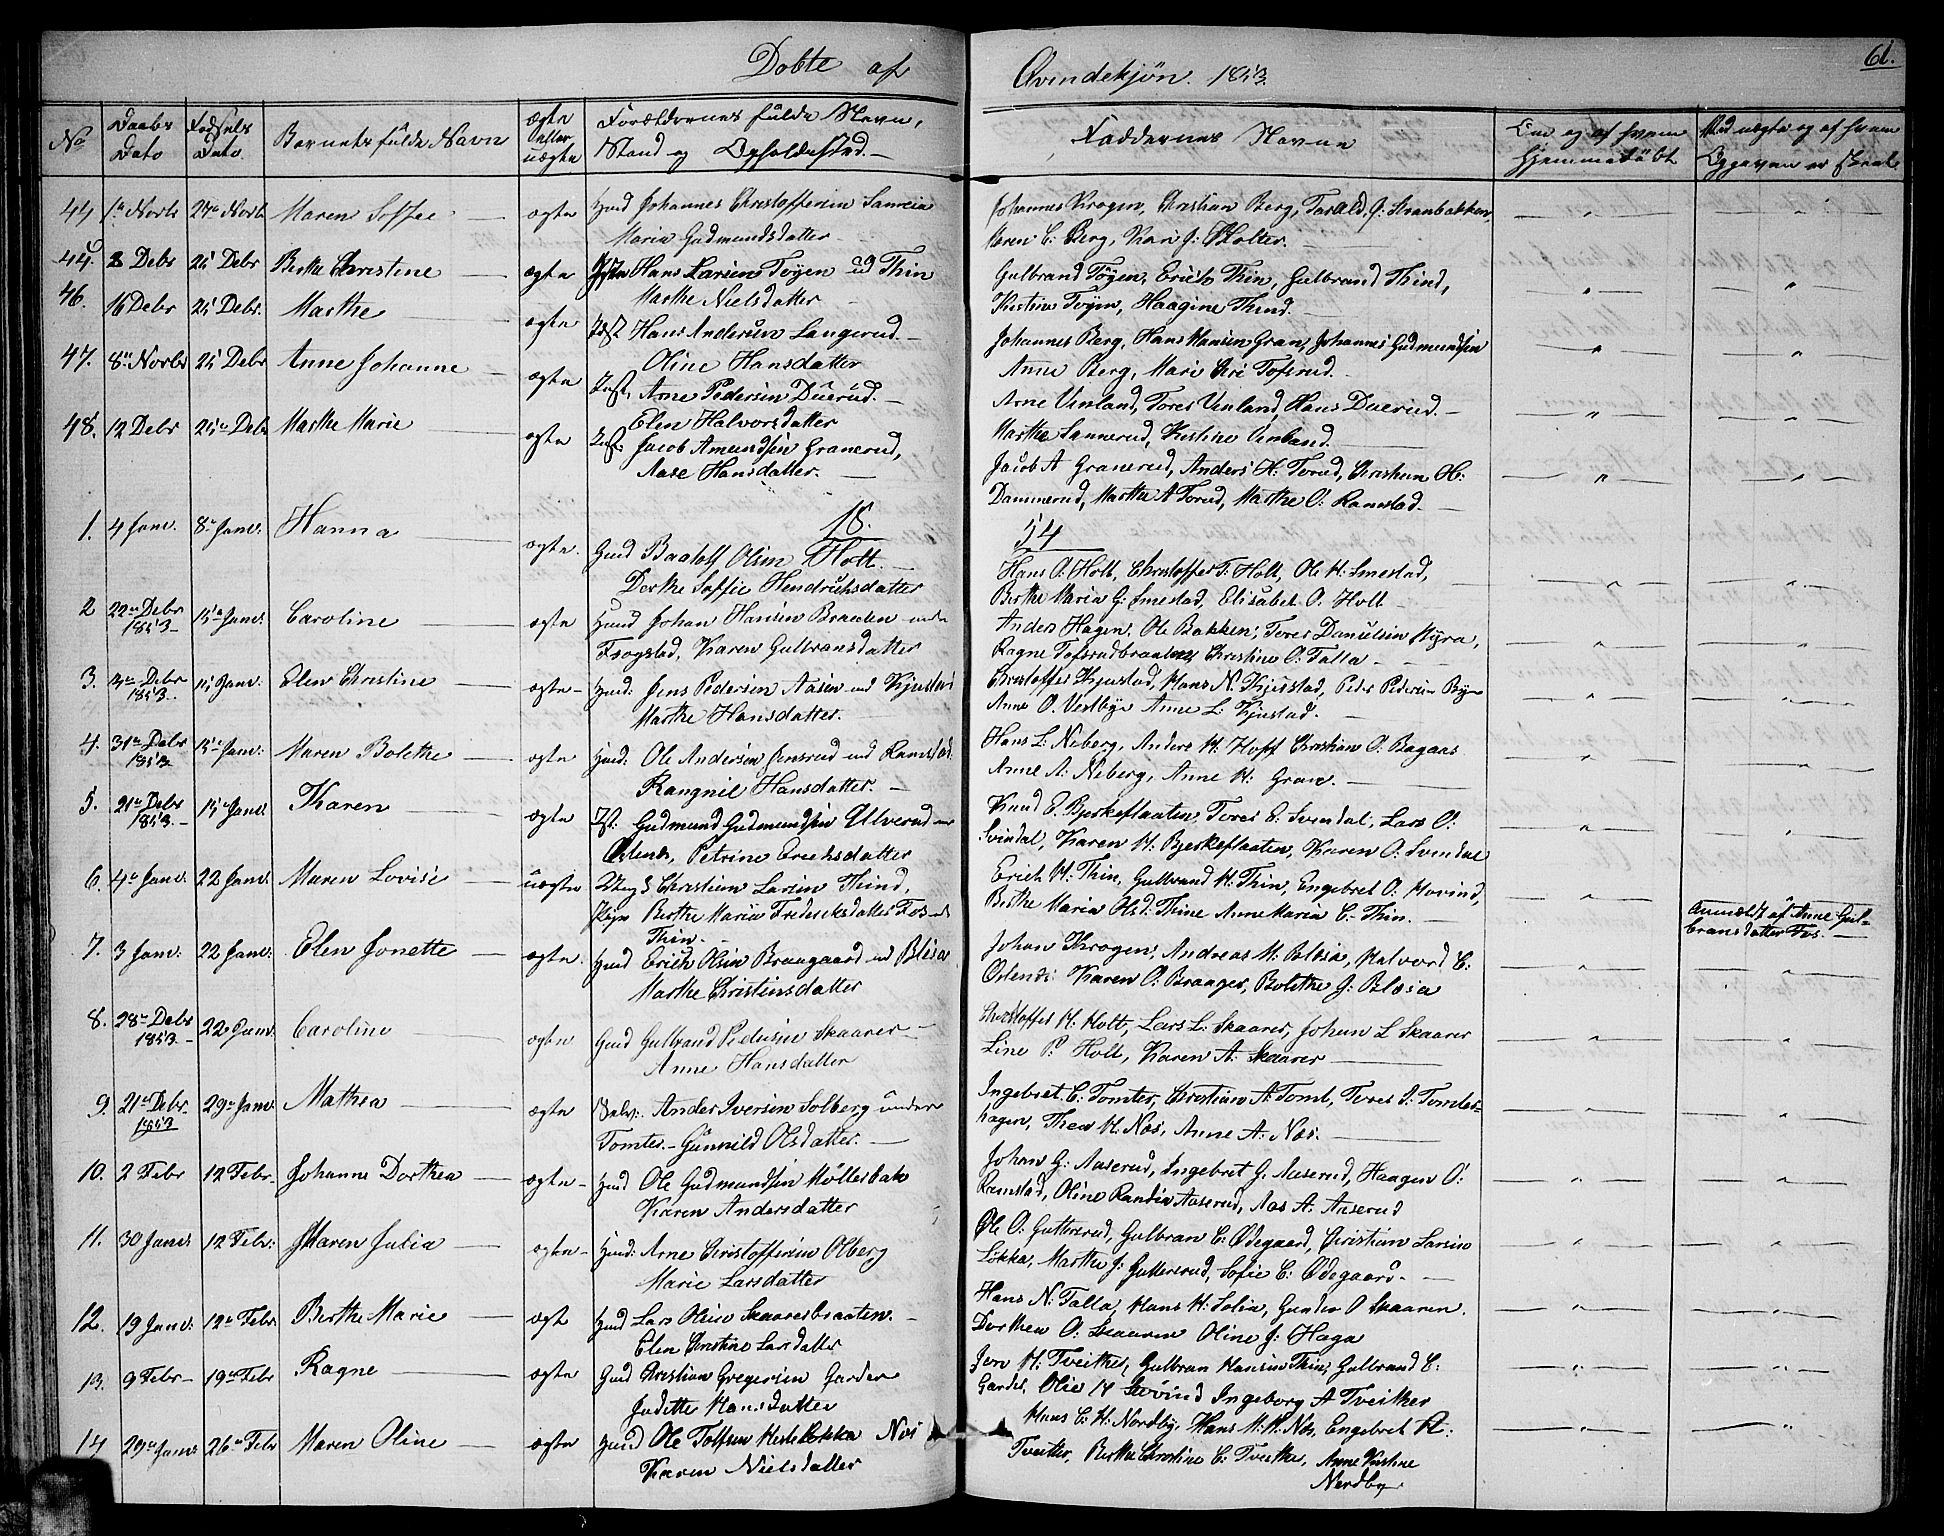 Døbte af Qvindekjøn. 1853.
61.
No
Daabs Dato
Fødsels Dato
Barnets fulde Navn
ægte eller uægte
Forældrenes fulde Navn, Stand og Opholdssted.
Faddernes Navne
Om og af hvem hjemmedøbt.
44 1a Novb 24a Novb Maren Soffie ægte Huusmd Johannes Christoffersen
Maria Gudmundsdatter
Johannes Krogen, Christian Berg,
Maren C: Berg, Kari J: Skolter.
45. 8 Debr 25 Debr Berthe Christine ægte Hans Larsen Togen ud Thin
Marthe Nielsdatter
Gulbrand Togen, Erich Thin, Gulbrand Thind,
Kristine Togen, Haagine Thind.
46. 16 Debr 25 Debr. Marthe ægte Hans Andersen Langerud.
Oline Hansdatter
Johannes Berg, Hans Hansen Gran, Johannes Gudmundsen
Anne Berg, Mari Tofsrud.
47. 8de Novbr 25 Debr Anne Johanne ægte Arne Pedersen Duerud.
Elen Halvorsdatter
Arne Vinland, Tores Vinland, Hans Duerud.
Marthe Sannerud, Kristine Vinland.
48. 12 Debr 25de Debr Marthe Marie ægte Jacob Amundsen Granerud,
Aase Hansdatter.
Jacob A Granerud, Anders H: Torud, Christian H:
Dammerud, Marthe A Torud, Marthe O: Ramstad.
18 54
1. 4 Janv. 8de Janv. Hanna ægte. Gmd Baatolf Olsen Holt.
Dorthe Soffie Hendrichsdatter
Hans O: Holt, Christoffer T: Holt, Ole H. Smestad,
Berthe Maria G: Smestad, Elisabet O. Holt
2 22de Debr 1853 15de Janv. Caroline ægte Huusmd Johan Hansen Braaten under
Frogstad, Karen Gulbransdatter
Anders Hagen, Ole Bakken, Tores Danielsen Myra,
Ragne Tofsrudbraaten Christine O: Falla
3. 14de Debr 1853. 15 Janv. Elen Christine ægte Huusmd: Jens Pedersen Aasen ud Kjustad
Marthe Hansdatter.
Christoffer Kjustad, Hans N. Kjustad, Peder Pedersen
Anne O. Vestbye Anne L: Kjustad.
4. 31te Debr 1853 15de Janv: Maren Bolethe ægte Huusmd: Ole Andersen Jensrud ud Ramstad.
Rangnil Hansdatter.
Hans L: Neberg, Anders H: Hoff Christian O: Bagaas
Anne A: Neberg, Anne H: Gran.
5. 21de Debr 1853. 15 Janv. Karen ægte Gudmund Gudmundsen Ulverud
Petrine Erichsdatter
Knud E. Bjerkeflaaten, Tores E. Svendal, Lars O:
Svindal, Karen H: Bjerkeflaaten, Karen O: Svendal
6. 4de Janv. 22 Janv. Maren Lovise uægte Ung. Christian Larsen Thind,
Pige Berthe Maria Frederiksdatter Fos ud
Thin.
Erich H: Thin, Gulbrand H: Thin, Engebret O: Hovind,
Berthe Maria Olsd: Thine Anne Maria C. Thin.
Anmeldt af Anne Gulbransdatter Fos.
7. 3 Janv: 22 Janv: Elen Jonette ægte. Huusmd Erich Olsen Braagaard ud Blesa
Marthe Christensdatter
Johan Krogen, Andreas M. Blesa, Halvord C:
Karen O: Braager, Bolethe J: Blesia
8. 28de Debr 1853. 22 Janv. Caroline ægte Gmd Gulbrand Pedersen Skaarer
Anne Hansdatter
Christoffer H: Holt, Lars L: Skaarer, Johan L Skaarer
Line P: Holt, Karen A: Skaarer
9. 21de Debr. 1853 29de Janv. Mathea ægte Selv: Anders Iversen Solberg under
Tomter. Gunnild Olsdatter.
Ingebret C. Tomter, Christian A: Tomt, Tores J. Tomter-
hagen, Thea H. Nos, Anne A: Nos.
10. 2 Febr 12 Febr. Johanne Dorthea ægte Huusmd Ole Gudmundsen Møllerbak
Karen Andersdatter
Johan G: Aaserud, Ingebret G. Aaserud, Haagen O:
Ramstad, Oline Randin Aaserud, Aas A. Aaserud
11. 30 Janv: 12 Febr: Maren Julia ægte Huusmd: Arne Christoffersen Olberg
Marie Larsdatter
Ole O: Guttersrud, Gulbran C: Ødegaard, Christian Larsen
Løkka, Marthe J: Guttersrud, Sofie C: Ødegaard.
12. 19 Janv: 12te Febr. Berthe Marie ægte Huusmd Lars Olsen Skaarerbraaten.
Elen Christine Larsdatter
Hans N. Falla, Hans H. Solia, Gunder O Skaaren.
Dorthea O: Skaaren Oline J: Haga
13. 9 Febr 19de Febr Ragne ægte Gmd Christian Gregersen Garder
Judithe Hansdatter
Jon H: Tveither, Gulbran Hansen Thin, Gulbrand C:
Garder, Olie H Hovind Ingeborg A Tveither
14 29de Janv 26de Febr Maren Oline ægte Huusmd Ole Tolfsen Nos
Karen Nielsdatter
Hans C. H: Nordby, Hans M. H. Nos, Engebret A:
Tveitter, Berthe Christine C: Tveithe, Anne Kirstine
Nordby